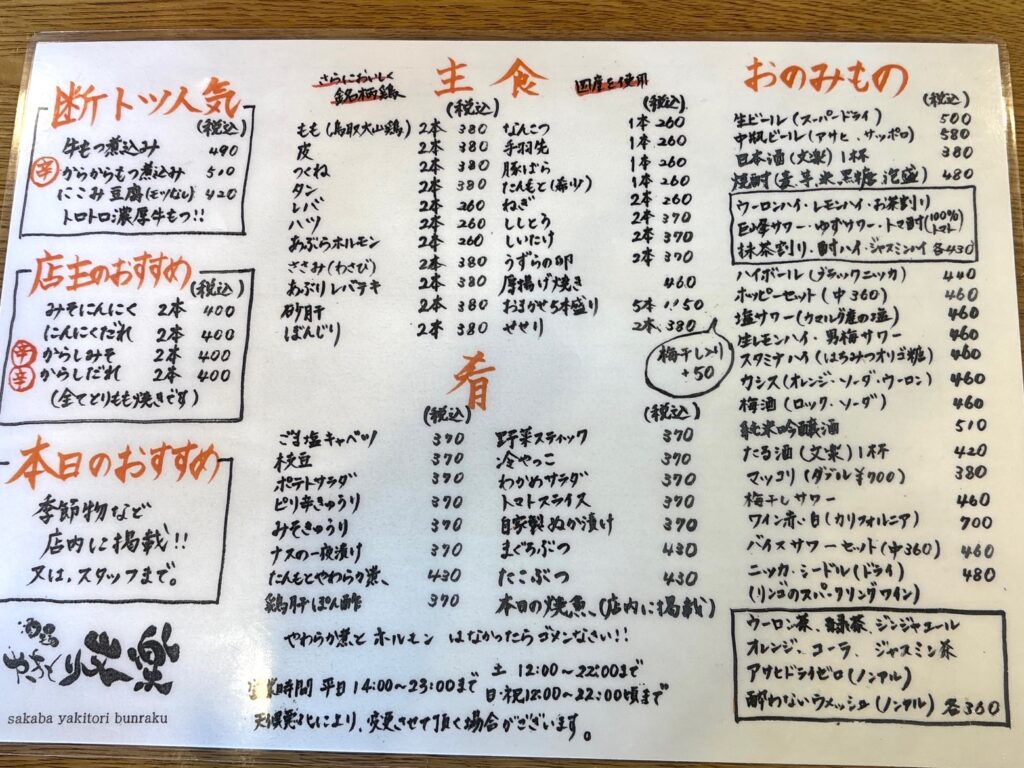 断トツ人気
(税込)
牛もつ煮込み 490
辛 からからもつ煮込み 510
にこみ豆腐(モツなし) 420
トロトロ濃厚牛もつ!!
店主のおすすめ
(税込)
みそにんにく 2本 400
にんにくだれ 2本 400
辛 からしみそ 2本 400
辛 からしだれ 2本 400
(全てとりもも焼きです)
本日のおすすめ
季節物など
店内に掲載!!
又は、スタッフまで。
sakaba yakitori bunraku
さらにおいしく
銘柄鶏
主食
国産を使用
(税込)
もも(鳥取大山鶏) 2本 380
皮 2本 380
つくね 2本 380
タン 2本 380
レバ 2本 260
ハツ 2本 260
あぶらホルモン 2本 260
ささみ(わさび) 2本 380
あぶりレバテキ 2本 380
砂肝 2本 380
ぼんじり 2本 380
(税込)
なんこつ 1本 260
手羽先 1本 260
豚ばら 1本 260
たんもと(希少) 1本 260
ねぎ 2本 260
ししとう 2本 370
しいたけ 2本 370
うずらの卵 2本 370
厚揚げ焼き 460
おまかせ5本盛り 5本 1,150
せせり 2本 380
梅干し入り
+50
肴
(税込)
ごま塩キャベツ 370
枝豆 370
ポテトサラダ 370
ピリ辛きゅうり 370
みそきゅうり 370
ナスの一夜漬け 370
たんもとやわらか煮、 430
鶏肝ぽん酢 370
(税込)
野菜スティック 370
冷やっこ 370
わかめサラダ 370
トマトスライス 370
自家製ぬか漬け 370
まぐろぶつ 430
たこぶつ 430
本日の焼魚、(店内に掲載)
やわらか煮とホルモン はなかったらゴメンなさい!!
営業時間 平日14:00~23:00まで
土 12:00~22:00まで
日・祝12:00~22:00頃まで
天候悪化により、変更させて頂く場合がございます。
おのみもの
(税込)
生ビール(スーパードライ) 500
中瓶ビール(アサヒ、サッポロ) 580
日本酒(文楽)1杯 380
焼酎(麦、芋、米、黒糖、泡盛) 480
ウーロンハイ・レモンハイ・お茶割り
巨峰サワー・ゆずサワー・トマ酎(100%トマト)
抹茶割り・酎ハイ・ジャスミンハイ 各430
ハイボール(ブラックニッカ) 440
ホッピーセット(中360) 460
塩サワー(カマルグ産の塩) 460
生レモンハイ・男梅サワー 460
スタミナハイ(はちみつオリゴ糖) 460
カシス(オレンジ・ソーダ・ウーロン) 460
梅酒(ロック・ソーダ) 460
純米吟醸酒 510
たる酒(文楽)1杯 420
マッコリ(ダブル¥700) 380
梅干しサワー 460
ワイン赤・白(カリフォルニア) 700
バイスサワーセット(中360) 460
ニッカ・シードル(ドライ) 480
(リンゴのスパークリングワイン)
ウーロン茶、緑茶、ジンジャエール
オレンジ、コーラ、ジャスミン茶
アサヒドライゼロ(ノンアル)
酔わないウメッシュ(ノンアル) 各360